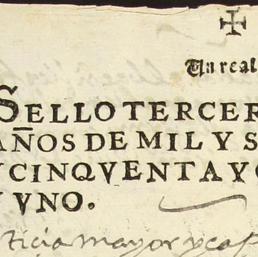 Un real
SELLO TERCER
AÑOS DE MIL Y S
Y CINQVENTA Y
Y VNO.
ticia mayor y cap